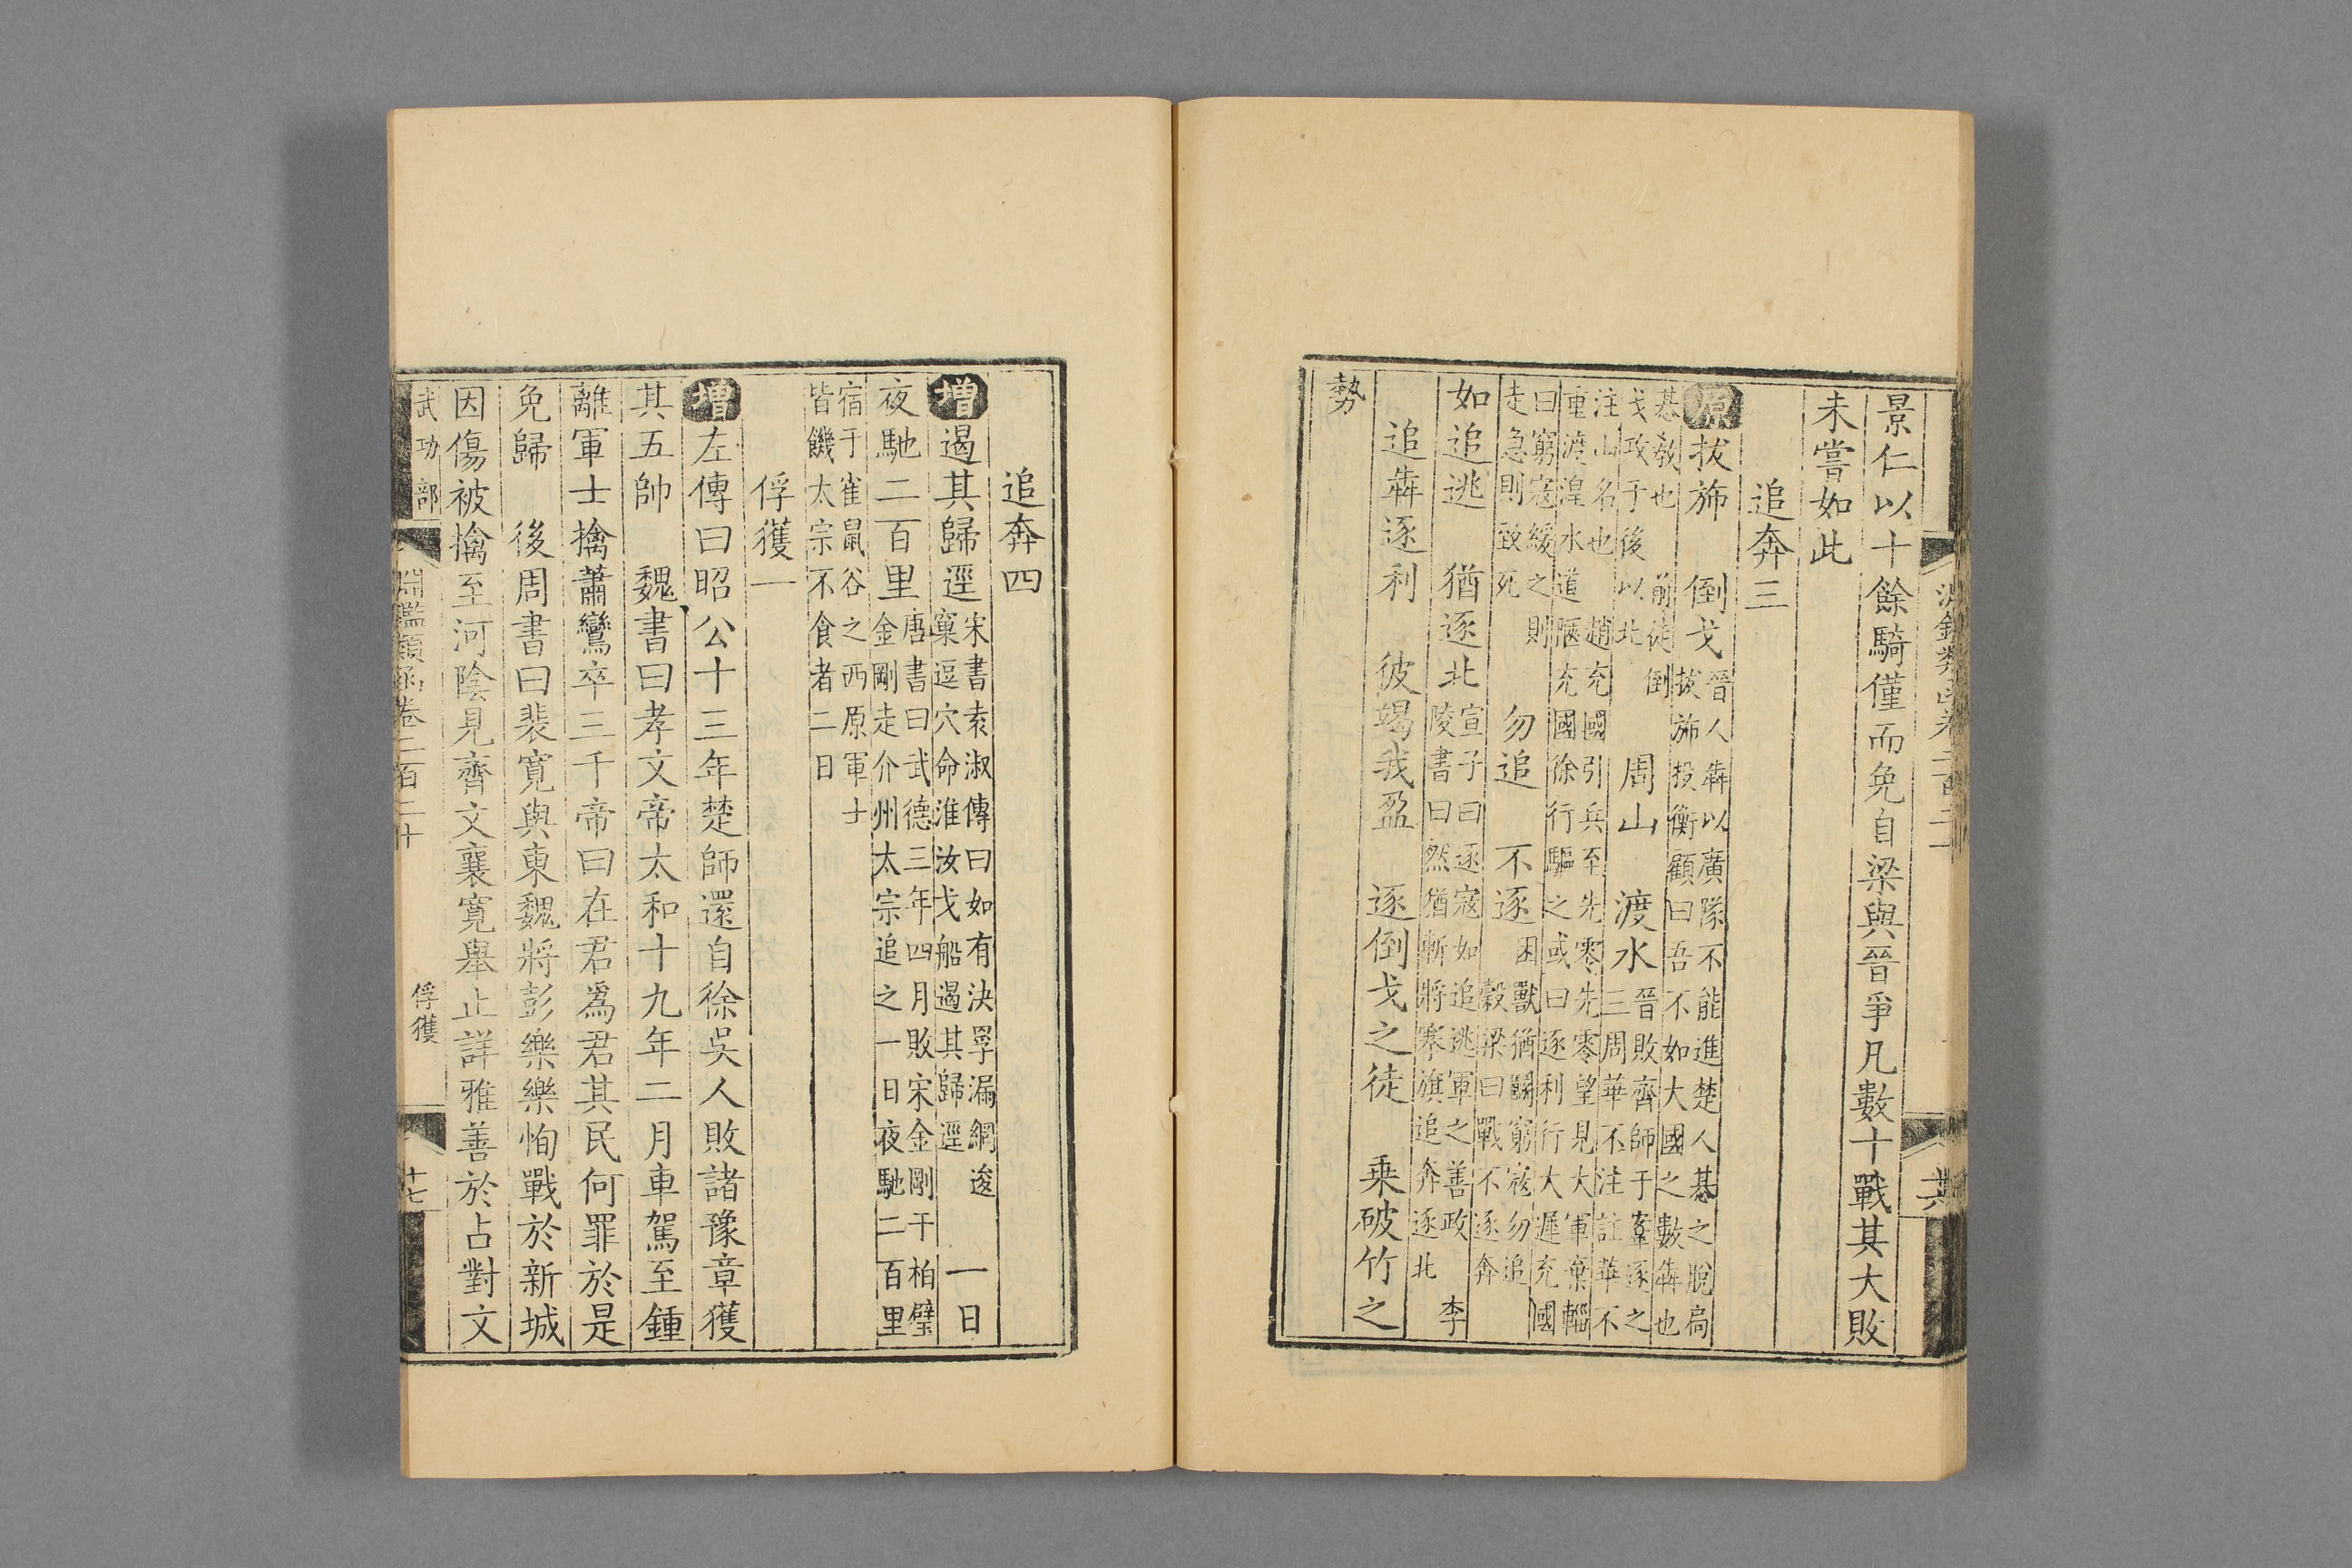 景仁以十餘騎僅而免自梁與晉爭凡數十戰其大敗
未嘗如此
追奔三
原拔斾　倒戈晉人犇以廣隊不能進楚人惎之脫扃
拔斾投衡顧曰吾不如大國之數犇也
惎敎也　前徒倒
戈攻于後以北　周山　渡水晉敗齊師于鞌逐之
三周華不注註華不
注山名也　趙充國引兵至先零先零望見大軍棄輜
重渡湟水道隘充國徐行驅之或曰逐利行大遲充國
曰窮寇緩之則
走急則致死　勿追　不逐困獸猶鬭窮寇勿追
穀梁曰戰不逐奔
如追逃　猶逐北宣子曰逐寇如追逃軍之善政　李
陵書曰然猶斬將搴旗追奔逐北
追犇逐利　彼竭我盈　逐倒戈之徒　乗破竹之
勢
追奔四
增遏其歸逕宋書袁淑傳曰如有決罕漏網逡
窠逗穴命淮汝戈船遏其歸逕　一日
夜馳二百里唐書曰武德三年四月敗宋金剛干柏壁
金剛走介州太宗追之一日夜馳二百里
宿于雀鼠谷之西原軍士
皆饑太宗不食者二日
俘獲一
增左傳曰昭公十三年楚師還自徐吳人敗諸豫章獲
其五帥　魏書曰孝文帝太和十九年二月車駕至鍾
離軍士擒蕭鸞卒三千帝曰在君爲君其民何罪於是
免歸　後周書曰裴寬與東魏將彭樂樂恂戰於新城
因傷被擒至河陰見齊文襄寬舉止詳雅善於占對文
武功部　淵鑑類函卷二百二十　俘獲　十七